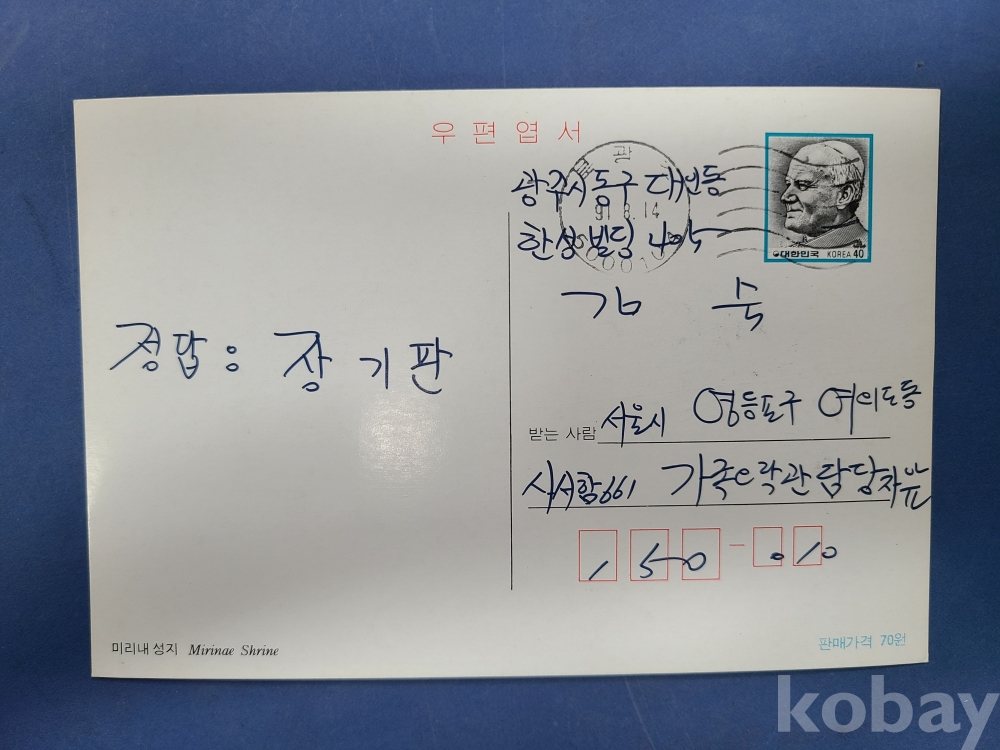 우편엽서
광주시 동구 대인동
한성빌딩 405
김 숙
91.8.14
대한민국 KOREA 40
정답: 장기판
받는 사람 서울시 영등포구 여의도동
사서함 661 가족오락관 담당자앞
150-010
미리내 성지 Mirinae Shrine
판매가격 70원
kobay